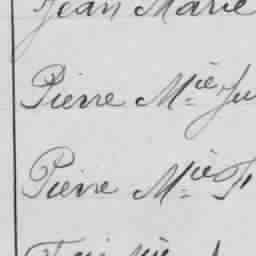 Jean Marie
Pierre Mie Ju
Pierre Mie F